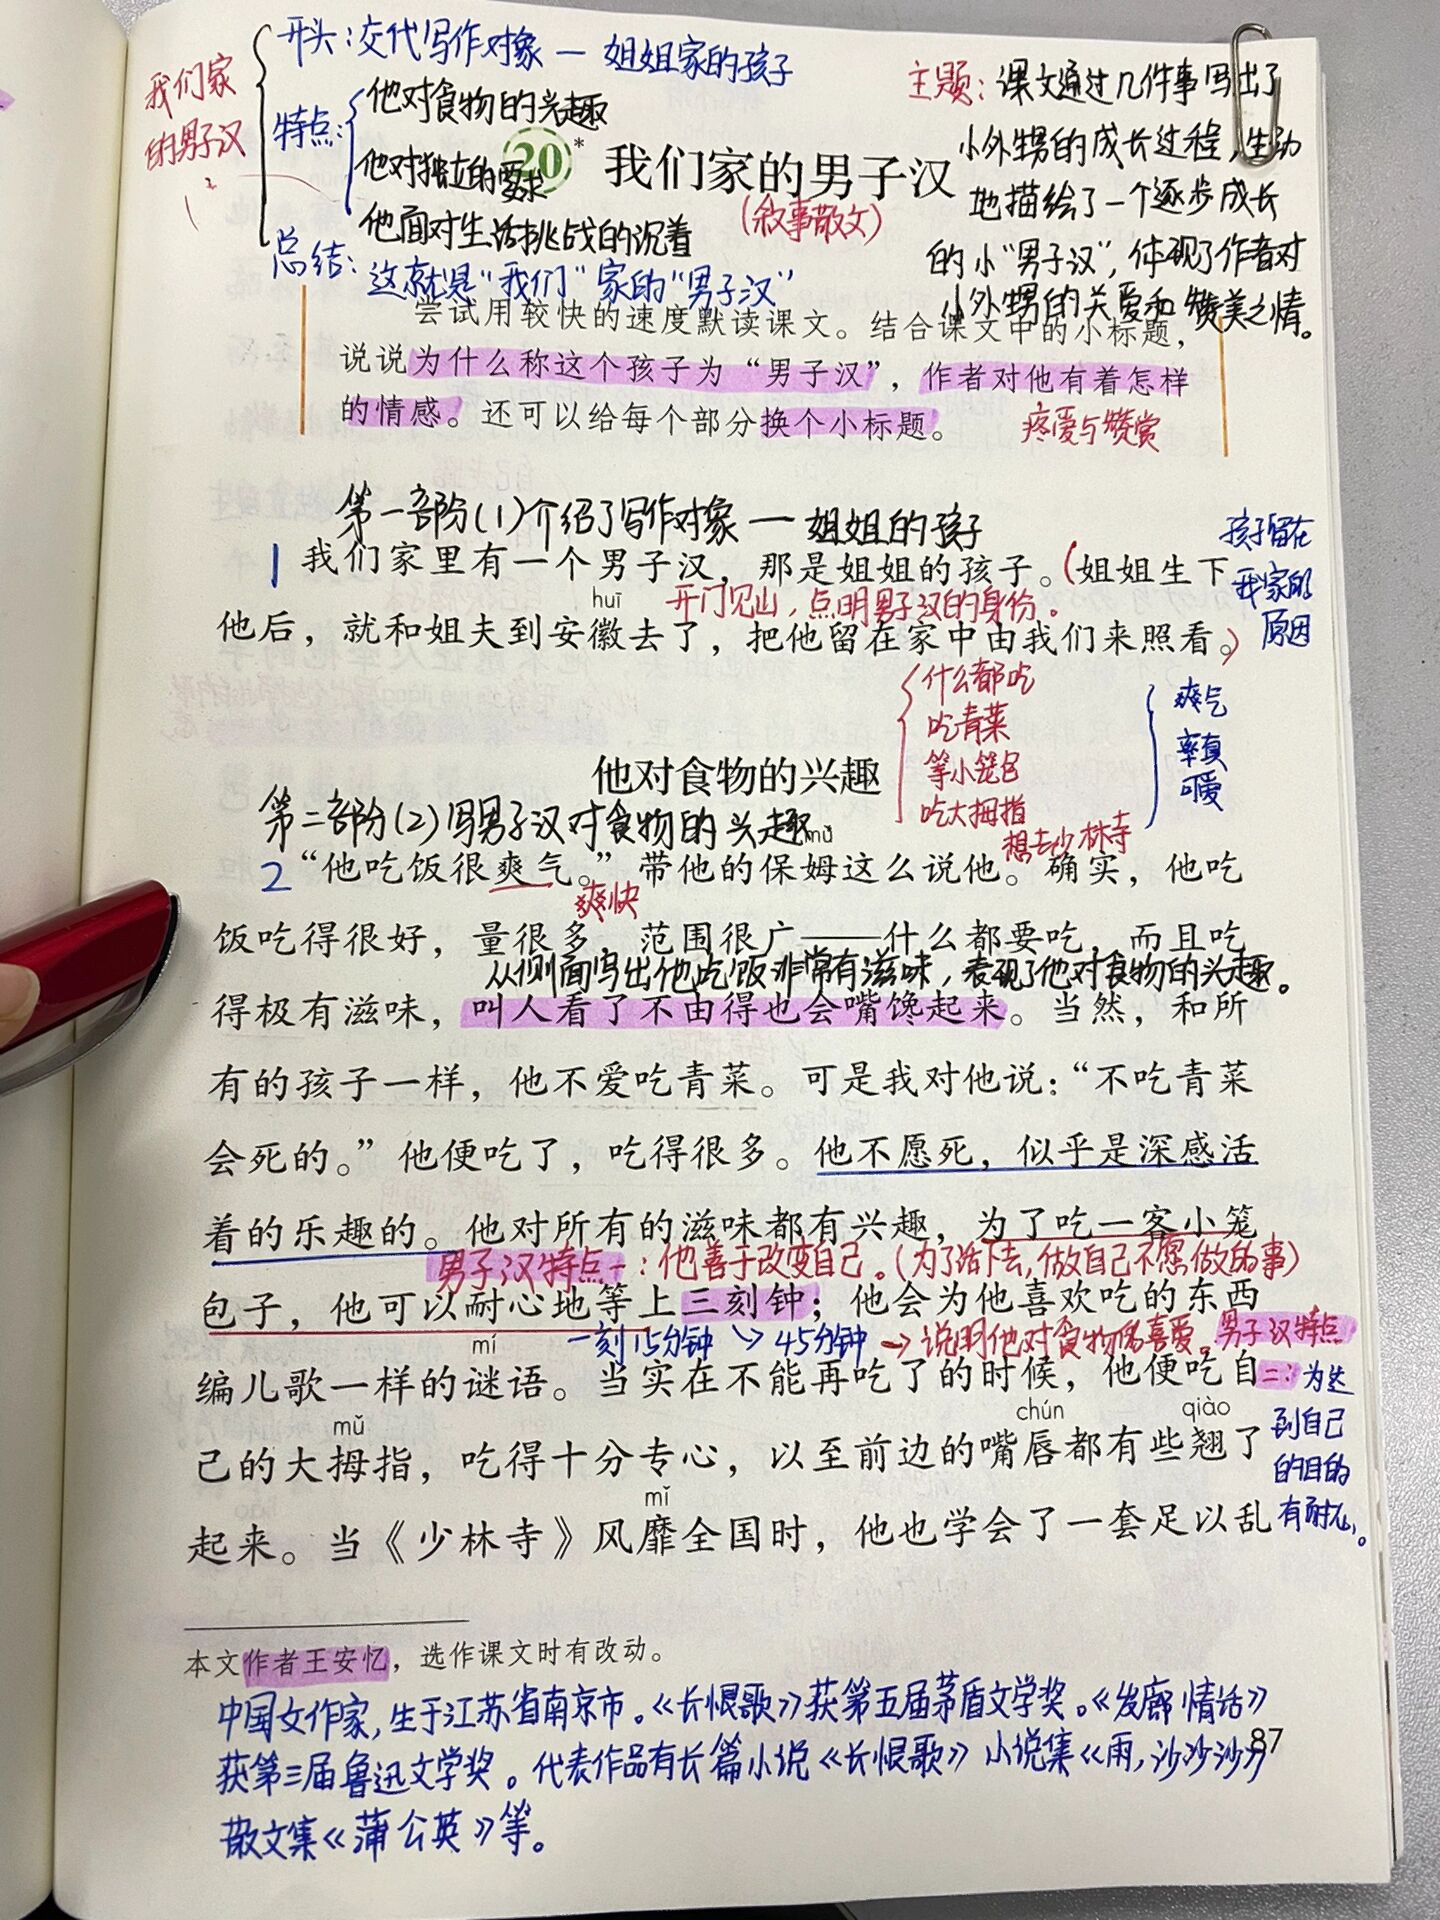 我们家
的男子汉
开头：交代写作对象 — 姐姐家的孩子
特点：
他对食物的兴趣
他对独立的要求
他面对生活挑战的沉着
总结：这就是“我们”家的“男子汉”
主题：课文通过几件事写出了
小外甥的成长过程，生动
地描绘了一个逐步成长
的小“男子汉”，体现了作者对
小外甥的关爱和赞美之情。
20* 我们家的男子汉
（叙事散文）
尝试用较快的速度默读课文。结合课文中的小标题，
说说为什么称这个孩子为“男子汉”，作者对他有着怎样
的情感。还可以给每个部分换个小标题。
疼爱与赞赏
第一部分（1）介绍了写作对象 — 姐姐的孩子
1 我们家里有一个男子汉，那是姐姐的孩子。（姐姐生下
huī
开门见山，点明男子汉的身份。
他后，就和姐夫到安徽去了，把他留在家中由我们来照看。）
孩子留在
我家的
原因
他对食物的兴趣
什么都吃
吃青菜
等小笼包
吃大拇指
想去少林寺
爽气
率真
可爱
第二部分（2）写男子汉对食物的兴趣
mǔ
2 “他吃饭很爽气。”带他的保姆这么说他。确实，他吃
爽快
饭吃得很好，量很多，范围很广——什么都要吃，而且吃
从侧面写出他吃饭非常有滋味，表现了他对食物的兴趣。
得极有滋味，叫人看了不由得也会嘴馋起来。当然，和所
有的孩子一样，他不爱吃青菜。可是我对他说：“不吃青菜
会死的。”他便吃了，吃得很多。他不愿死，似乎是深感活
着的乐趣的。他对所有的滋味都有兴趣，为了吃一客小笼
男子汉特点一：他善于改变自己。（为了活下去，做自己不愿做的事）
包子，他可以耐心地等上三刻钟；他会为他喜欢吃的东西
一刻15分钟 → 45分钟 → 说明他对食物的喜爱。
男子汉特点
二：为达
到自己
的目的
有耐心。
mí
编儿歌一样的谜语。当实在不能再吃了的时候，他便吃自
mǔ chún qiào
己的大拇指，吃得十分专心，以至前边的嘴唇都有些翘了
mǐ
起来。当《少林寺》风靡全国时，他也学会了一套足以乱
本文作者王安忆，选作课文时有改动。
中国女作家，生于江苏省南京市。《长恨歌》获第五届茅盾文学奖。《发廊情话》
获第三届鲁迅文学奖。代表作品有长篇小说《长恨歌》小说集《雨，沙沙沙》
散文集《蒲公英》等。
87